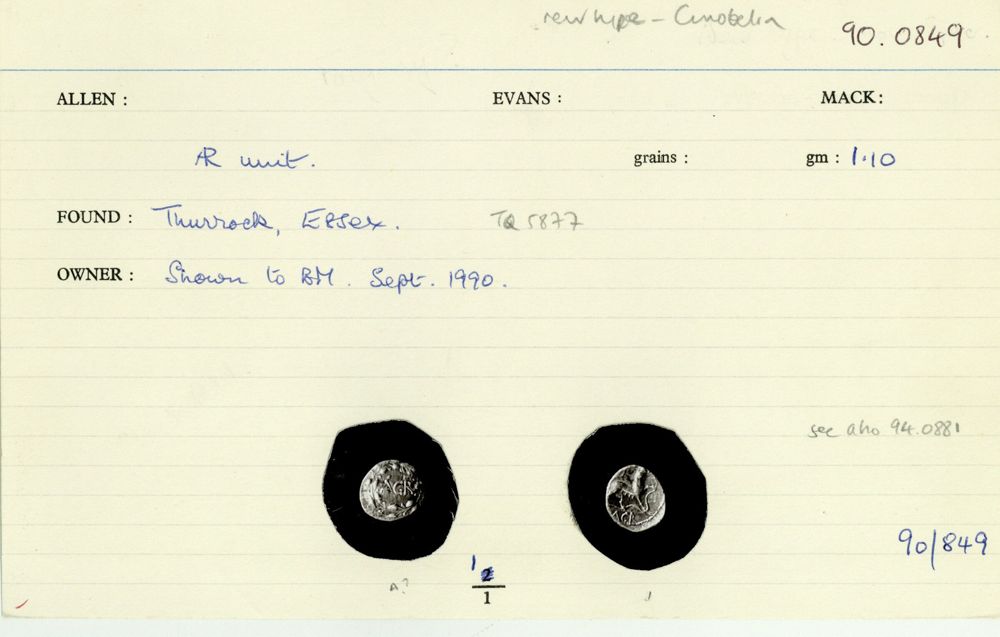 new type - Cunobelin
90.0849
ALLEN : EVANS : MACK:
AR unit. grains : gm : 1.10
FOUND : Thurrock, Essex. TQ 5877
OWNER : Shown to BM. Sept. 1990.
see also 94.0881
AGR
AGR
90/849
1 2
A?
1